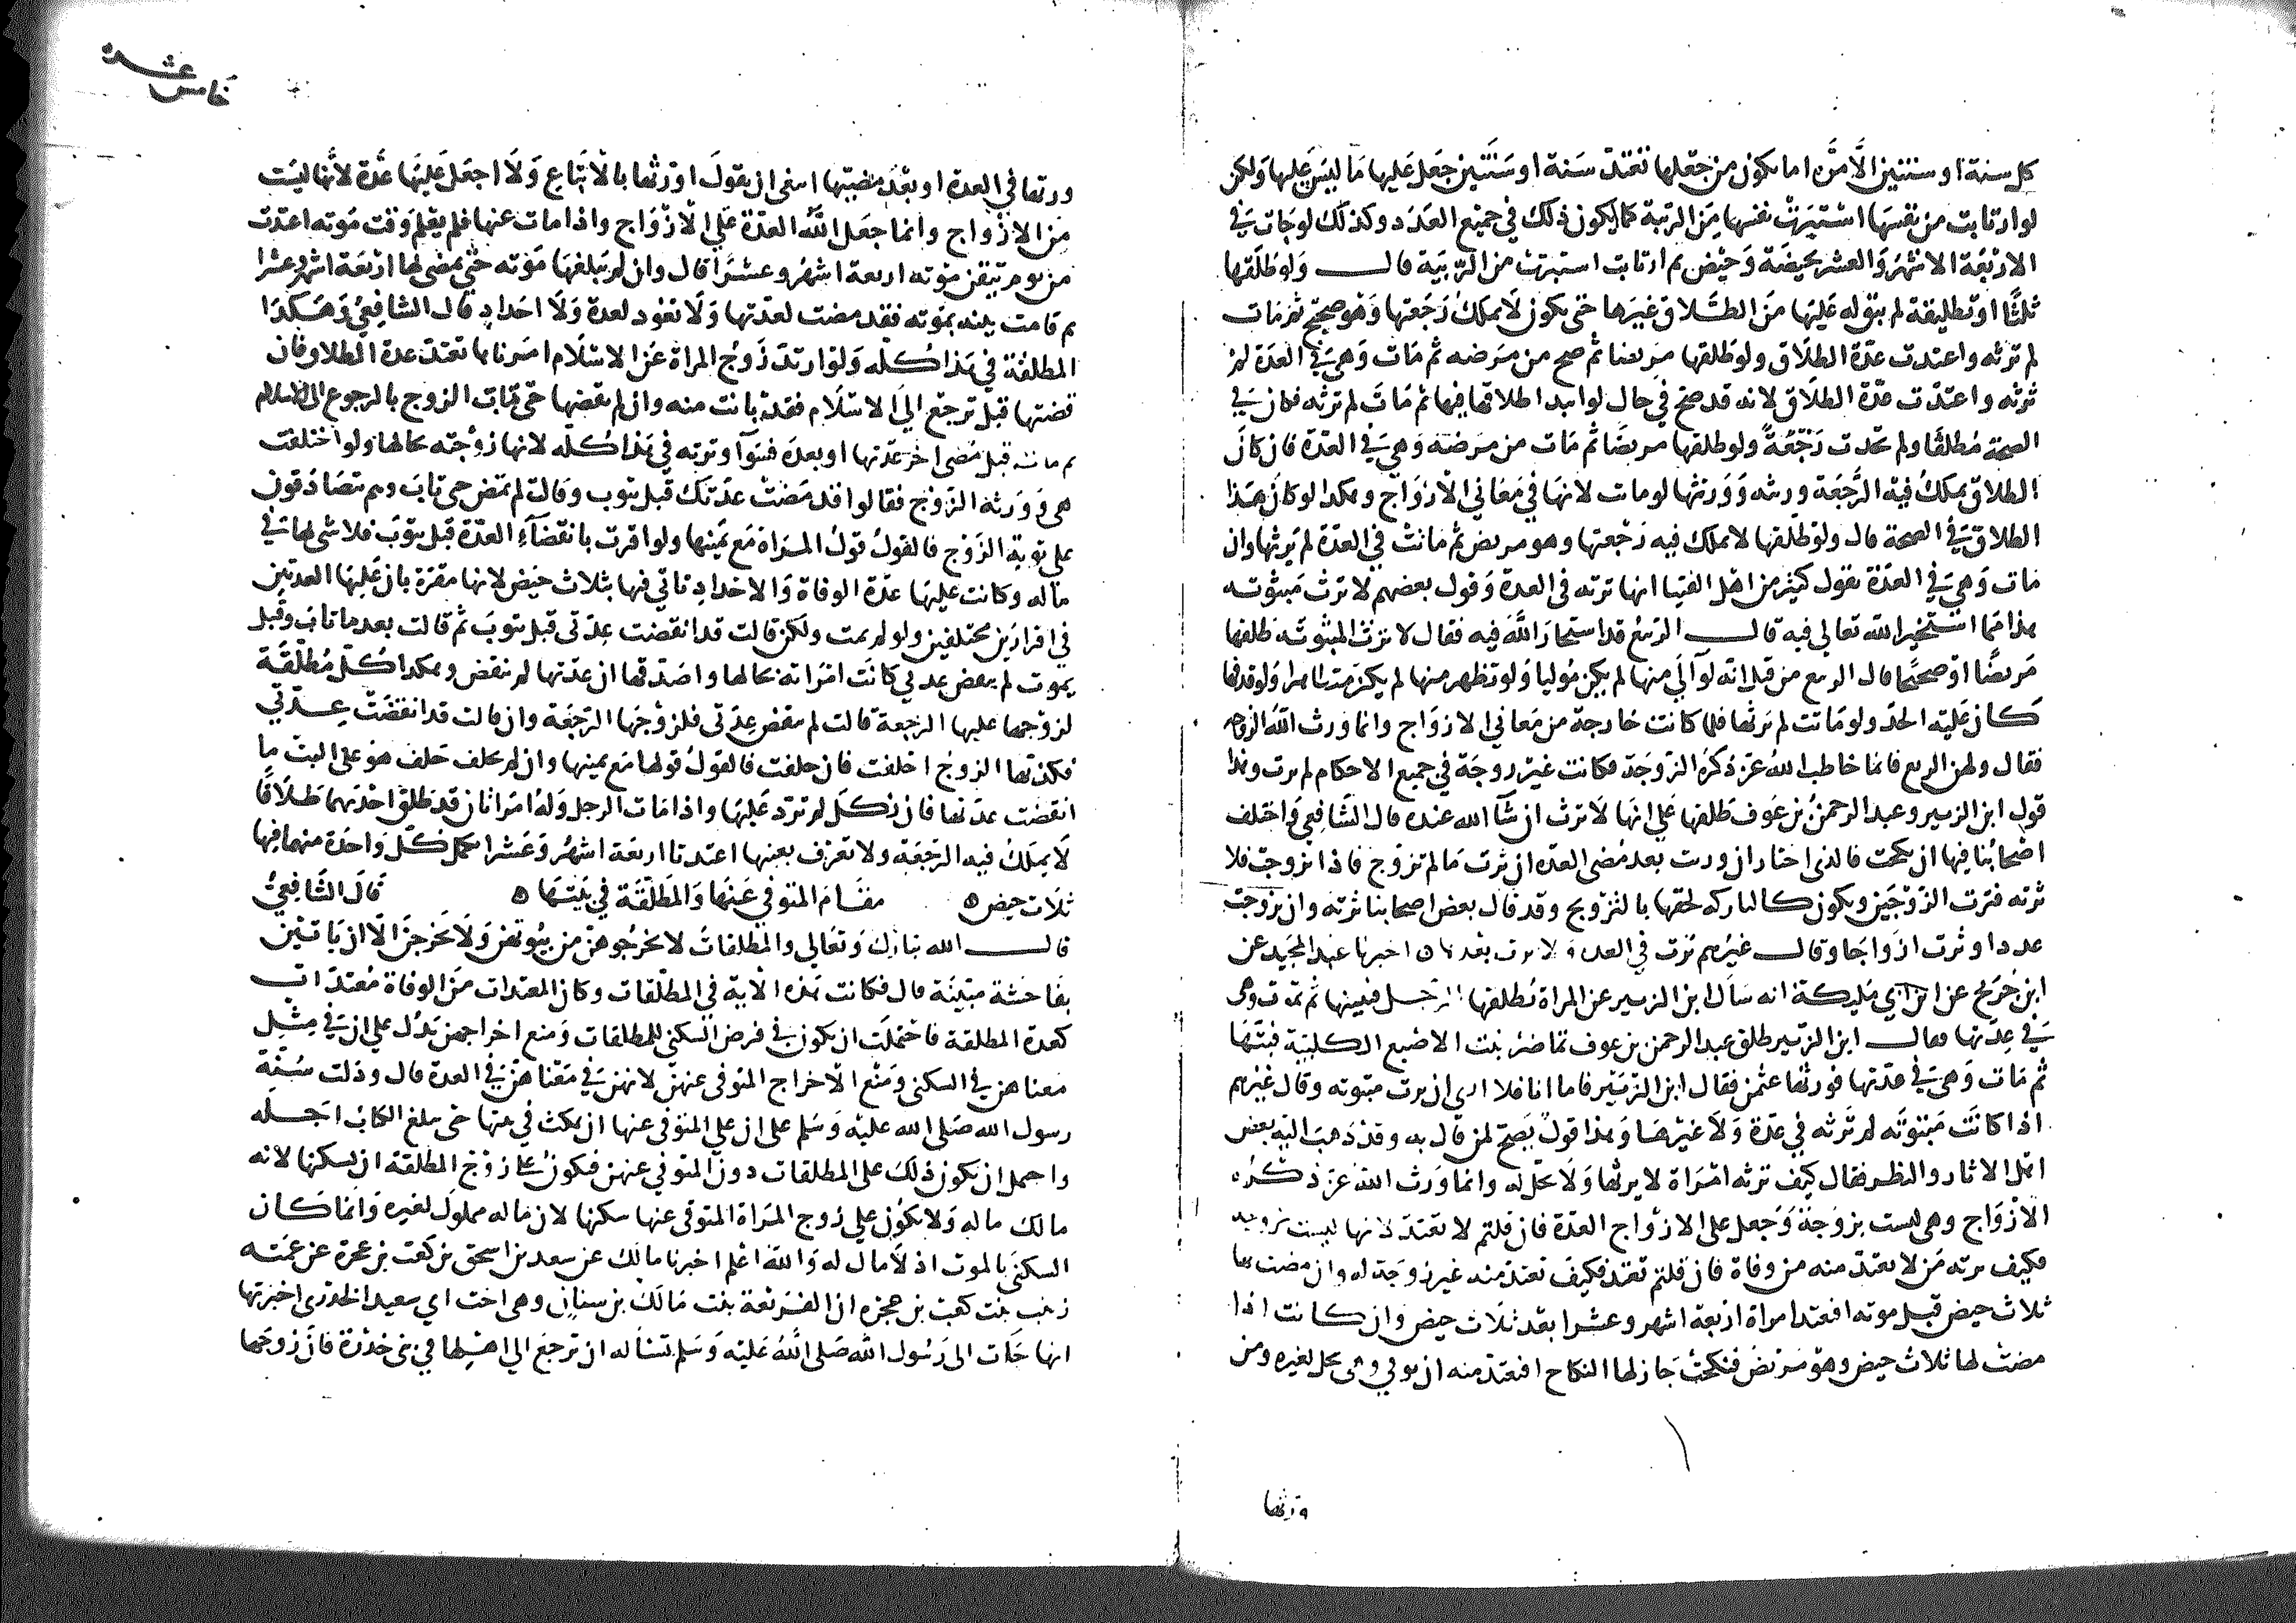 كل سنة او سنتين الا مرة اما يكون من جعلها تعتد سنة او سنتين جعل عليها ما ليس عليها ولكن
لو ارتابت من نفسها استبرت نفسها من الريبة كما يكون ذلك في جميع العدد وكذلك لو جات في
الاربعة الاشهر والعشر بحيضة وحيض ثم ارتابت استبرت من الريبة قال ولو طلقها
ثلثا او تطليقة لم يبق له عليها من الطلاق غيرها حتى يكون لا يملك رجعتها وهو صحيح ثم مات
لم ترثه واعتدت عدة الطلاق ولو طلقها مريضا ثم صح من مرضه ثم مات وهي في العدة لم
ترثه واعتدت عدة الطلاق لانه قد صح في حال لو ابتدا طلاقها فيها ثم مات لم ترثه فكان في
الصحة مطلقا ولم يحدث رجعة ولو طلقها مريضا ثم مات من مرضه وهي في العدة فان كان
الطلاق يملك فيه الرجعة ورثته وورثها لو مات لانها في معاني الازواج وهكذا لو كان هذا
الطلاق في الصحة قال ولو طلقها لا يملك فيه رجعتها وهو مريض ثم ماتت في العدة لم يرثها وان
مات وهي في العدة فقول كثير من اهل الفتيا انها ترثه في العدة وقول بعضهم لا ترث مبتوتة
هذا مما استخير الله تعالى فيه قال الربيع قد استخار الله فيه فقال لا ترث المبتوتة طلقها
مريضا او صحيحا قال الربيع من قبل انه لو آلى منها لم يكن موليا ولو تظهر منها لم يكن متظاهرا ولو قذفها
كان عليه الحد ولو ماتت لم يرثها فلما كانت خارجة من معاني الازواج وانما ورث الله الزوجة
فقال ولهن الربع فانما خاطب الله عز ذكره الزوجة فكانت غير زوجة في جميع الاحكام لم ترث وهذا
قول ابن الزبير وعبد الرحمن بن عوف طلقها على انها لا ترث ان شآ الله عنده قال الشافعي واختلف
اصحابنا فيها ان نكحت فالذي اختار ان ورثت بعد مضي العدة ان ترث ما لم تزوج فاذا تزوجت فلا
ترثه فترث الزوجين ويكون كالتاركه لحقها بالتزويج وقد قال بعض اصحابنا ترثه وان تزوجت
عددا وترث ازواجا وقال غيرهم ترث في العدة ولا ترث بعدها اخبرنا عبد المجيد عن
ابن جريج عن ابن ابي مليكة انه سال ابن الزبير عن المراة تطلقها الرجل فيبتها ثم يموت وهي
في عدتها فقال ابن الزبير طلق عبد الرحمن بن عوف تماضر بنت الاصبغ الكلبية فبتها
ثم مات وهي في عدتها فورثها عثمن فقال ابن الزبير فاما انا فلا ارى ان ترث مبتوته وقال غيرهم
اذا كانت مبتوته لم ترثه في عدة ولا غيرها وهذا قول يصح لمن قال به وقد ذهب اليه بعض
اهل الاثار والنظر فقال كيف ترثه امراة لا يرثها ولا تحل له وانما ورث الله عز ذكره
الازواج وهي ليست بزوجة وجعل على الازواج العدة فان قلتم لا تعتد لانها ليست بزوجة
فكيف ترثه من لا تعتد منه من وفاة فان قلتم تعتد فكيف تعتد منه غير زوجة له وان مضت بها
ثلاث حيض قبل موته افتعتد امراة اربعة اشهر وعشرا بعد ثلاث حيض وان كانت اذا
مضت لها ثلاث حيض وهو مريض فنكحت جاز لها النكاح افتعتد منه ان توفي وهي تحل لغيره ومن
ورثها
خامس عشرة
ورثها في العدة او بعد مضيها انبغى ان يقول اورثها بالاتباع ولا اجعل عليها عدة لانها ليست
من الازواج وانما جعل الله العدة على الازواج واذا مات عنها فلم يعلم وقت موته اعتدت
من يوم تيقن موته اربعة اشهر وعشرا قال وان لم يبلغها موته حتى يمضي لها اربعة اشهر وعشرا
ثم قامت بينه بموته فقد مضت لعدتها ولا تعود لعدة ولا احداد قال الشافعي وهكذا
المطلقة في هذا كله ولو ارتد زوج المراة عن الاسلام امرناها تعتد عدة الطلاق فان
قضتها قبل ترجع الى الاسلام فقد بانت منه وان لم تقضها حتى تاب الزوج بالرجوع الى الاسلام
ثم ماتت قبل مضي اخر عدتها او بعده فسوآ وترثه في هذا كله لانها زوجته بحالها ولو اختلفت
هي وورثة الزوج فقالوا قد مضت عدتك قبل يتوب وقالت لم تمض حتى تاب وهم يتصادقون
على توبة الزوج فالقول قول المراة مع يمينها ولو اقرت بانقضآء العدة قبل يتوب فلا شي لها في
ماله وكانت عليها عدة الوفاة والاحداد تاتي فيها بثلاث حيض لانها مقرة بان عليها العدتين
في اقرارين مختلفين ولو لم يمت ولكن قالت قد انقضت عدتي قبل يتوب ثم قالت بعد ما تاب وقبل
يموت لم تنقض عدتي كانت امراته بحالها واصدقها ان عدتها لم تنقض وهكذا كل مطلقة
لزوجها عليها الرجعة قالت لم تنقض عدتي فلزوجها الرجعة وان قالت قد انقضت عدتي
فكذبها الزوج احلفت فان حلفت فالقول قولها مع يمينها وان لم تحلف حلف هو على البت ما
انقضت عدتها فان نكل لم ترد عليها واذا مات الرجل وله امراتان قد طلق احديهما طلاقا
لا يملك فيه الرجعة ولا تعرف بعينها اعتدتا اربعة اشهر وعشرا تكمل كل واحدة منهما فيها
ثلاث حيض ه مقام المتوفى عنها والمطلقة في بيتها ه قال الشافعي
قال الله تبارك وتعالى والمطلقات لا تخرجوهن من بيوتهن ولا يخرجن الا ان ياتين
بفاحشة مبينة قال فكانت هذه الاية في المطلقات وكان المعتدات من الوفاة معتدات
كعدة المطلقة فاحتملت ان يكون في فرض السكنى للمطلقات ومنع اخراجهن يدل على ان في مثل
معناهن في السكنى ومنع الاخراج المتوفى عنهن لانهن في معناهن في العدة قال ودلت سنة
رسول الله صلى الله عليه وسلم على ان على المتوفى عنها ان تمكث في بيتها حتى يبلغ الكتاب اجله
واحتمل ان يكون ذلك على المطلقات دون المتوفى عنهن فيكون على زوج المطلقة ان يسكنها لانه
مالك ماله ولا يكون على زوج المراة المتوفى عنها سكنها لان ماله مملوك لغيره وانما كان
السكنى بالموت اذ لا مال له والله اعلم اخبرنا مالك عن سعد بن اسحق بن كعب بن عجرة عن عمته
زينب بنت كعب بن عجرة ان الفريعة بنت مالك بن سنان وهي اخت ابي سعيد الخدري اخبرتها
انها جات الى رسول الله صلى الله عليه وسلم تساله ان ترجع الى اهلها في بني خدرة فان زوجها